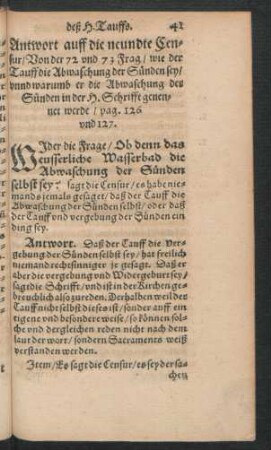 deß H. Tauffs. 41
Antwort auff die neundte Cen-
sur/Von der 72 vnd 73 Frag/ wie der
Tauff die Abwaschung der Sünden sey/
vnnd warumb er die Abwaschung der
Sünden in der H. Schrifft genen-
net werde / pag. 126
vnd 127.
WIder die Frage/ Ob denn das
eusserliche Wasserbad die
Abwaschung der Sünden
selbst sey? sagt die Censur/ es habe nie-
mands jemals gesaget/ daß der Tauff die
Abwaschung der Sünden selbst/ oder daß
der Tauff vnd vergebung der Sünden ein
ding sey.
Antwort. Daß der Tauff die Ver-
gebung der Sünden selbst sey/ hat freilich
niemand rechtsinniger je gesagt. Daß er
aber die vergebung vnd Widergeburt sey/
sagt die Schrifft/ vnd ist in der Kirchen ge-
breuchlich also zu reden. Derhalben weil der
Tauff nicht selbst dieses ist/ sonder auff ein
eigene vnd besondere weise/ so können sol-
che vnd dergleichen reden nicht nach dem
laut der wort/ sondern Sacraments weiß
verstanden werden.
Item/ Es sagt die Censur/ es sey der sa-
chen